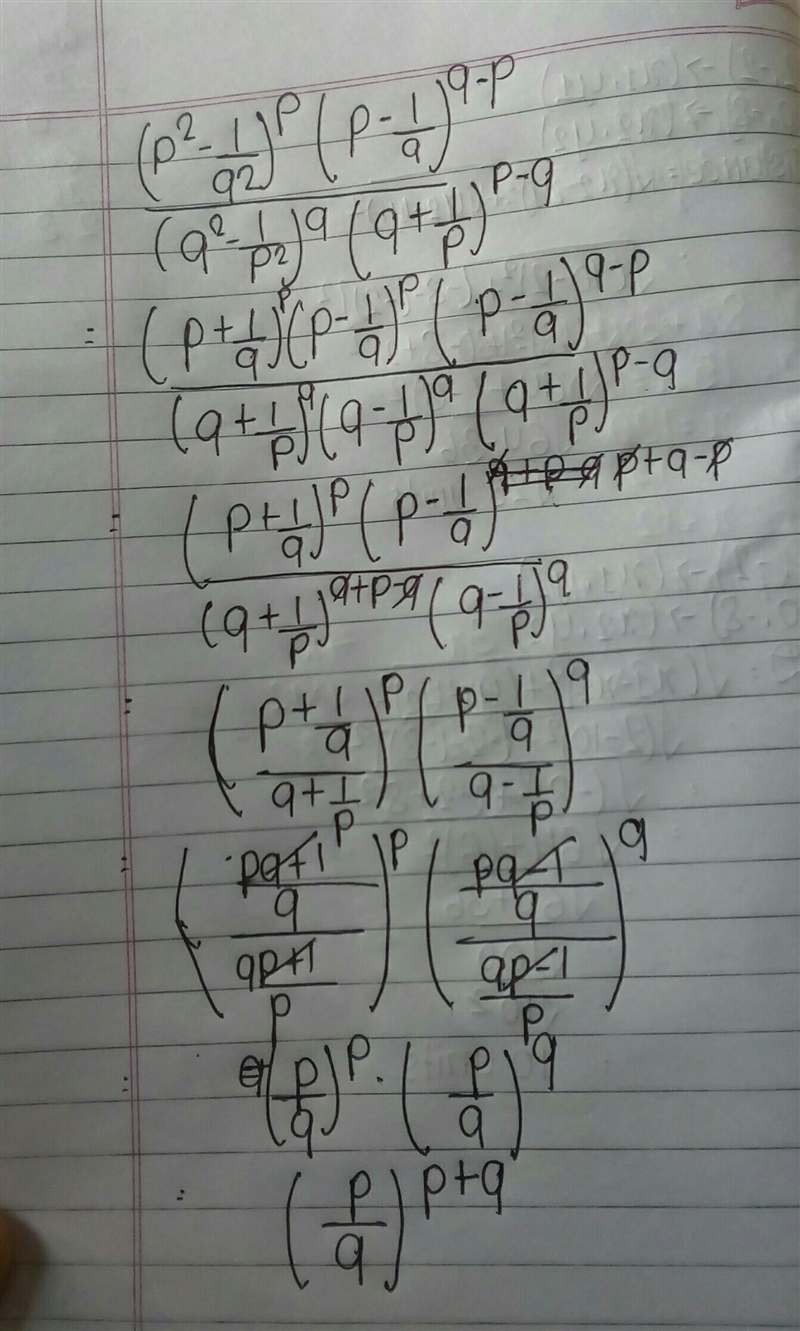 (p² - 1/q²)^p (p - 1/q)^(q-p)
(q² - 1/p²)^q (q + 1/p)^(p-q)
= (p + 1/q)^p (p - 1/q)^p (p - 1/q)^(q-p)
(q + 1/p)^q (q - 1/p)^q (q + 1/p)^(p-q)
= (p + 1/q)^p (p - 1/q)^(p+q-p)
(q + 1/p)^(q+p-q) (q - 1/p)^q
= ((p + 1/q)/(q + 1/p))^p ((p - 1/q)/(q - 1/p))^q
= (((pq+1)/q)/((qp+1)/p))^p (((pq-1)/q)/((qp-1)/p))^q
= (p/q)^p . (p/q)^q
= (p/q)^(p+q)